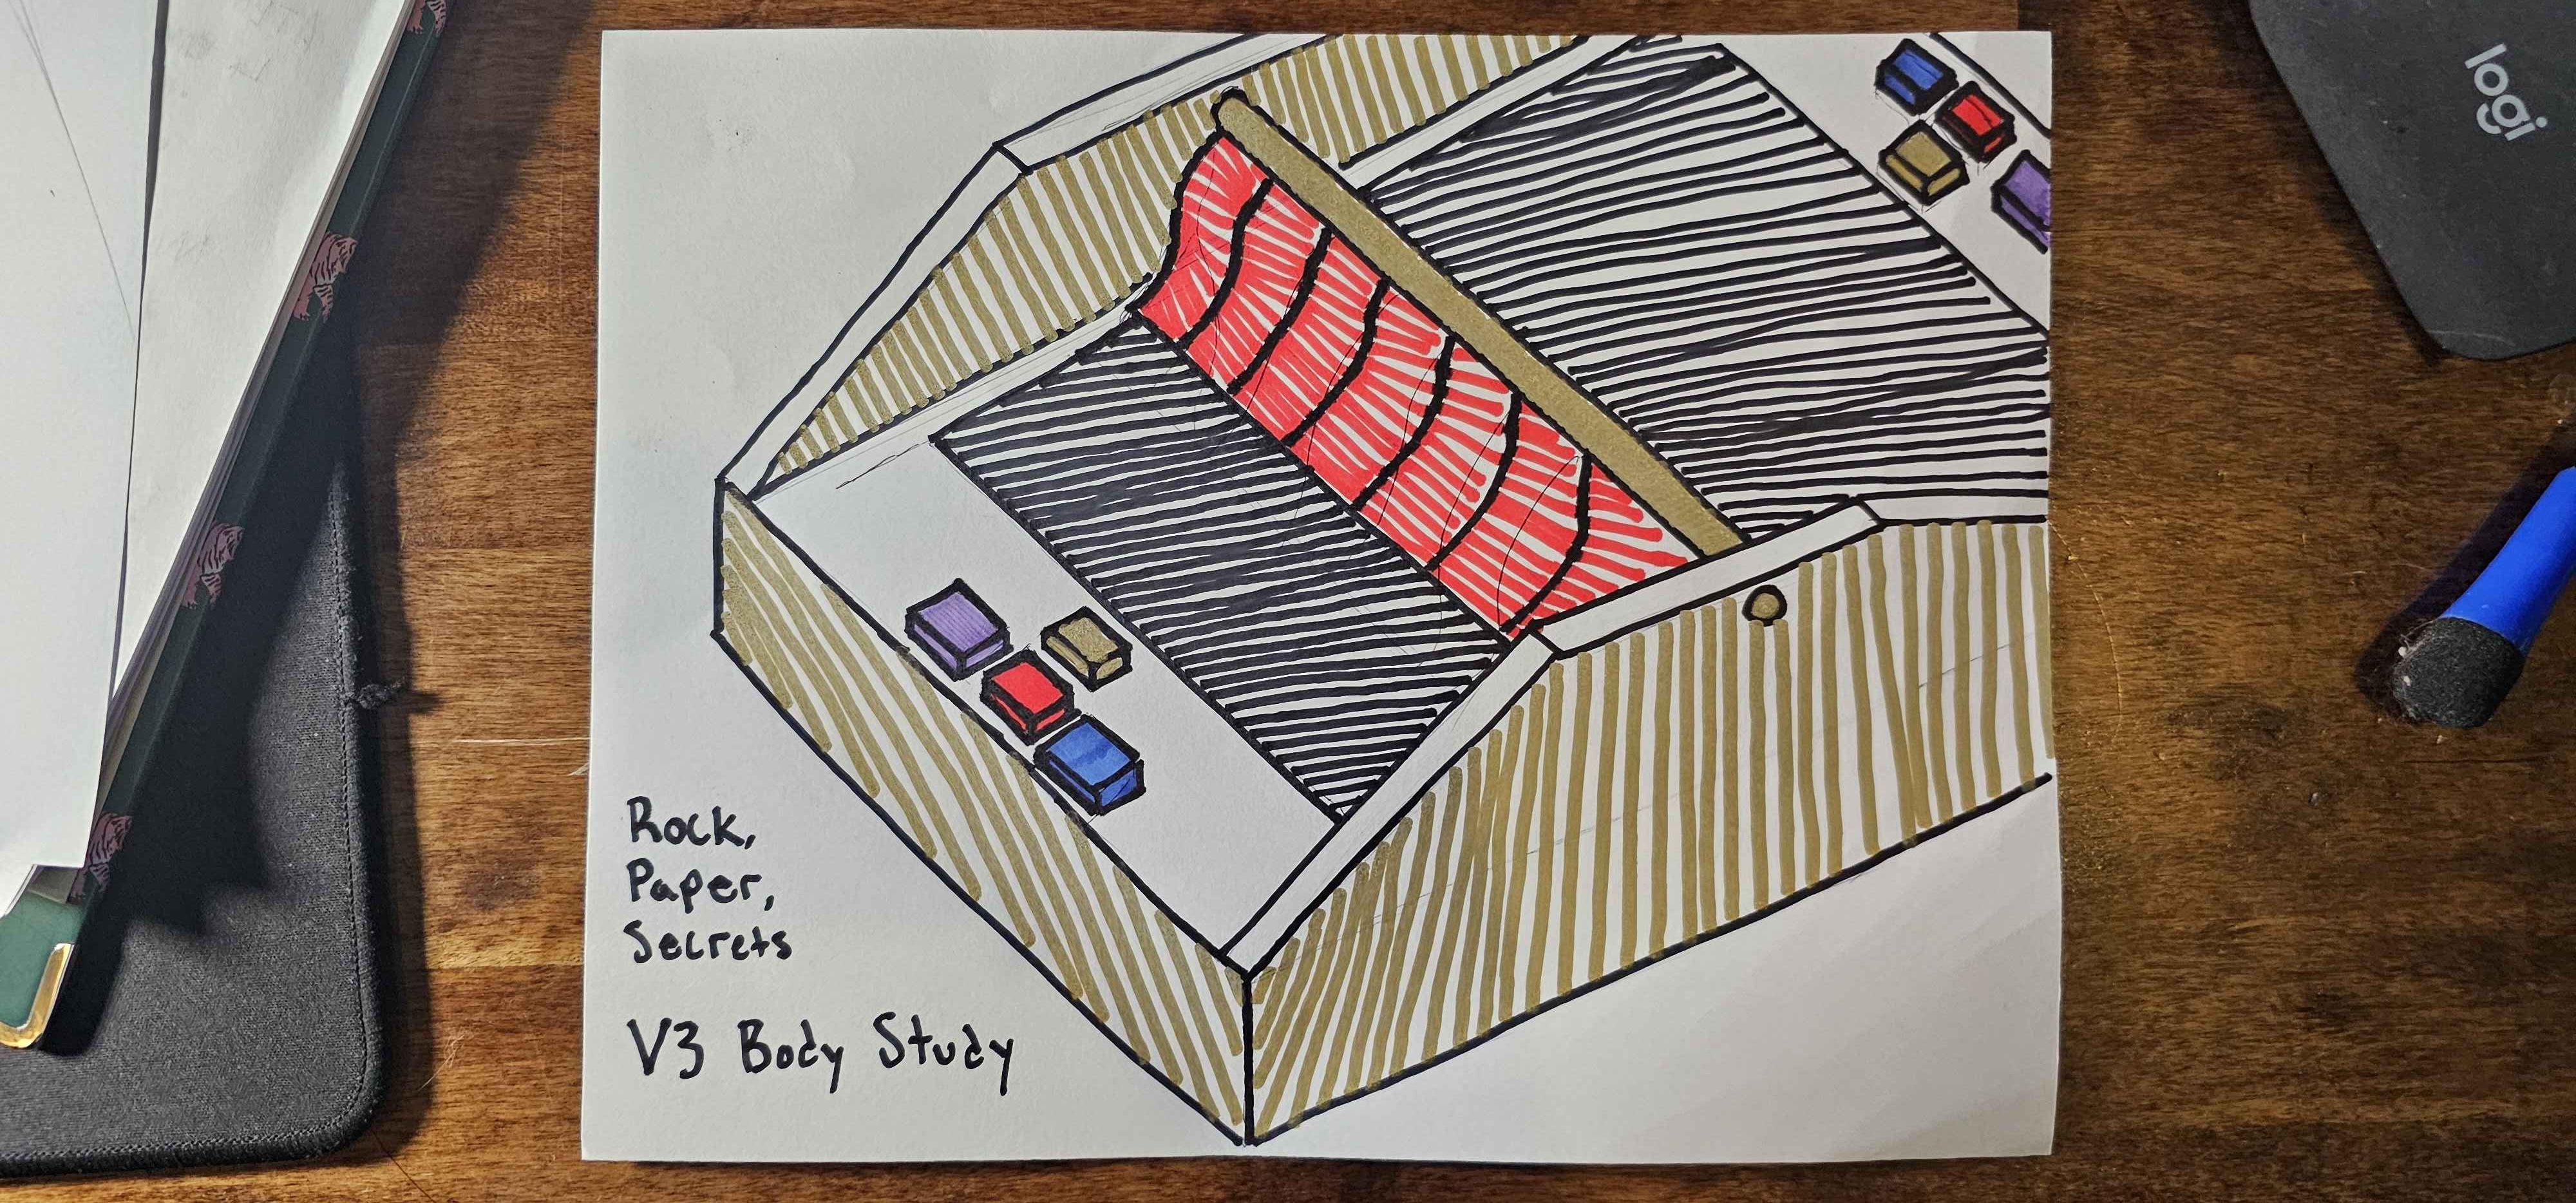 Rock,
Paper,
Secrets
V3 Body Study
logi